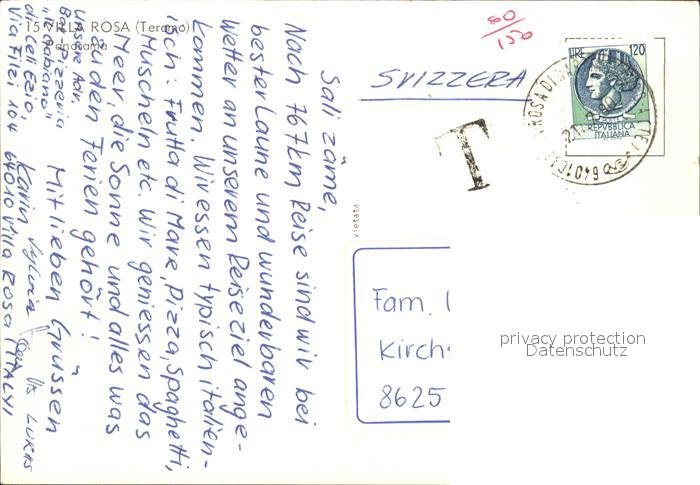 15 VILLA ROSA (Teramo)
Panorama
Sali zäme,
Nach 767km Reise sind wir bei
bester Laune und wunderbaren
Wetter an unserem Reiseziel ange-
kommen. Wir essen typisch italien-
isch: Frutta di Mare, Pizza, Spaghetti,
Muscheln etc. Wir geniessen das
Meer, die Sonne und alles was
zu den Ferien gehört!
Mit lieben Grüssen
Karin Sylvia
LUKAS
unsere Adr.
Bar Pizzeria
"il Gabbiano"
di Celi Ezio,
Via Filzi 104
64010 Villa Rosa (ITALY)
80
150
SVIZZERA
LIRE 120
REPVBBLICA
ITALIANA
64010
T
vietata
Fam.
Kirch
8625
privacy protection
Datenschutz